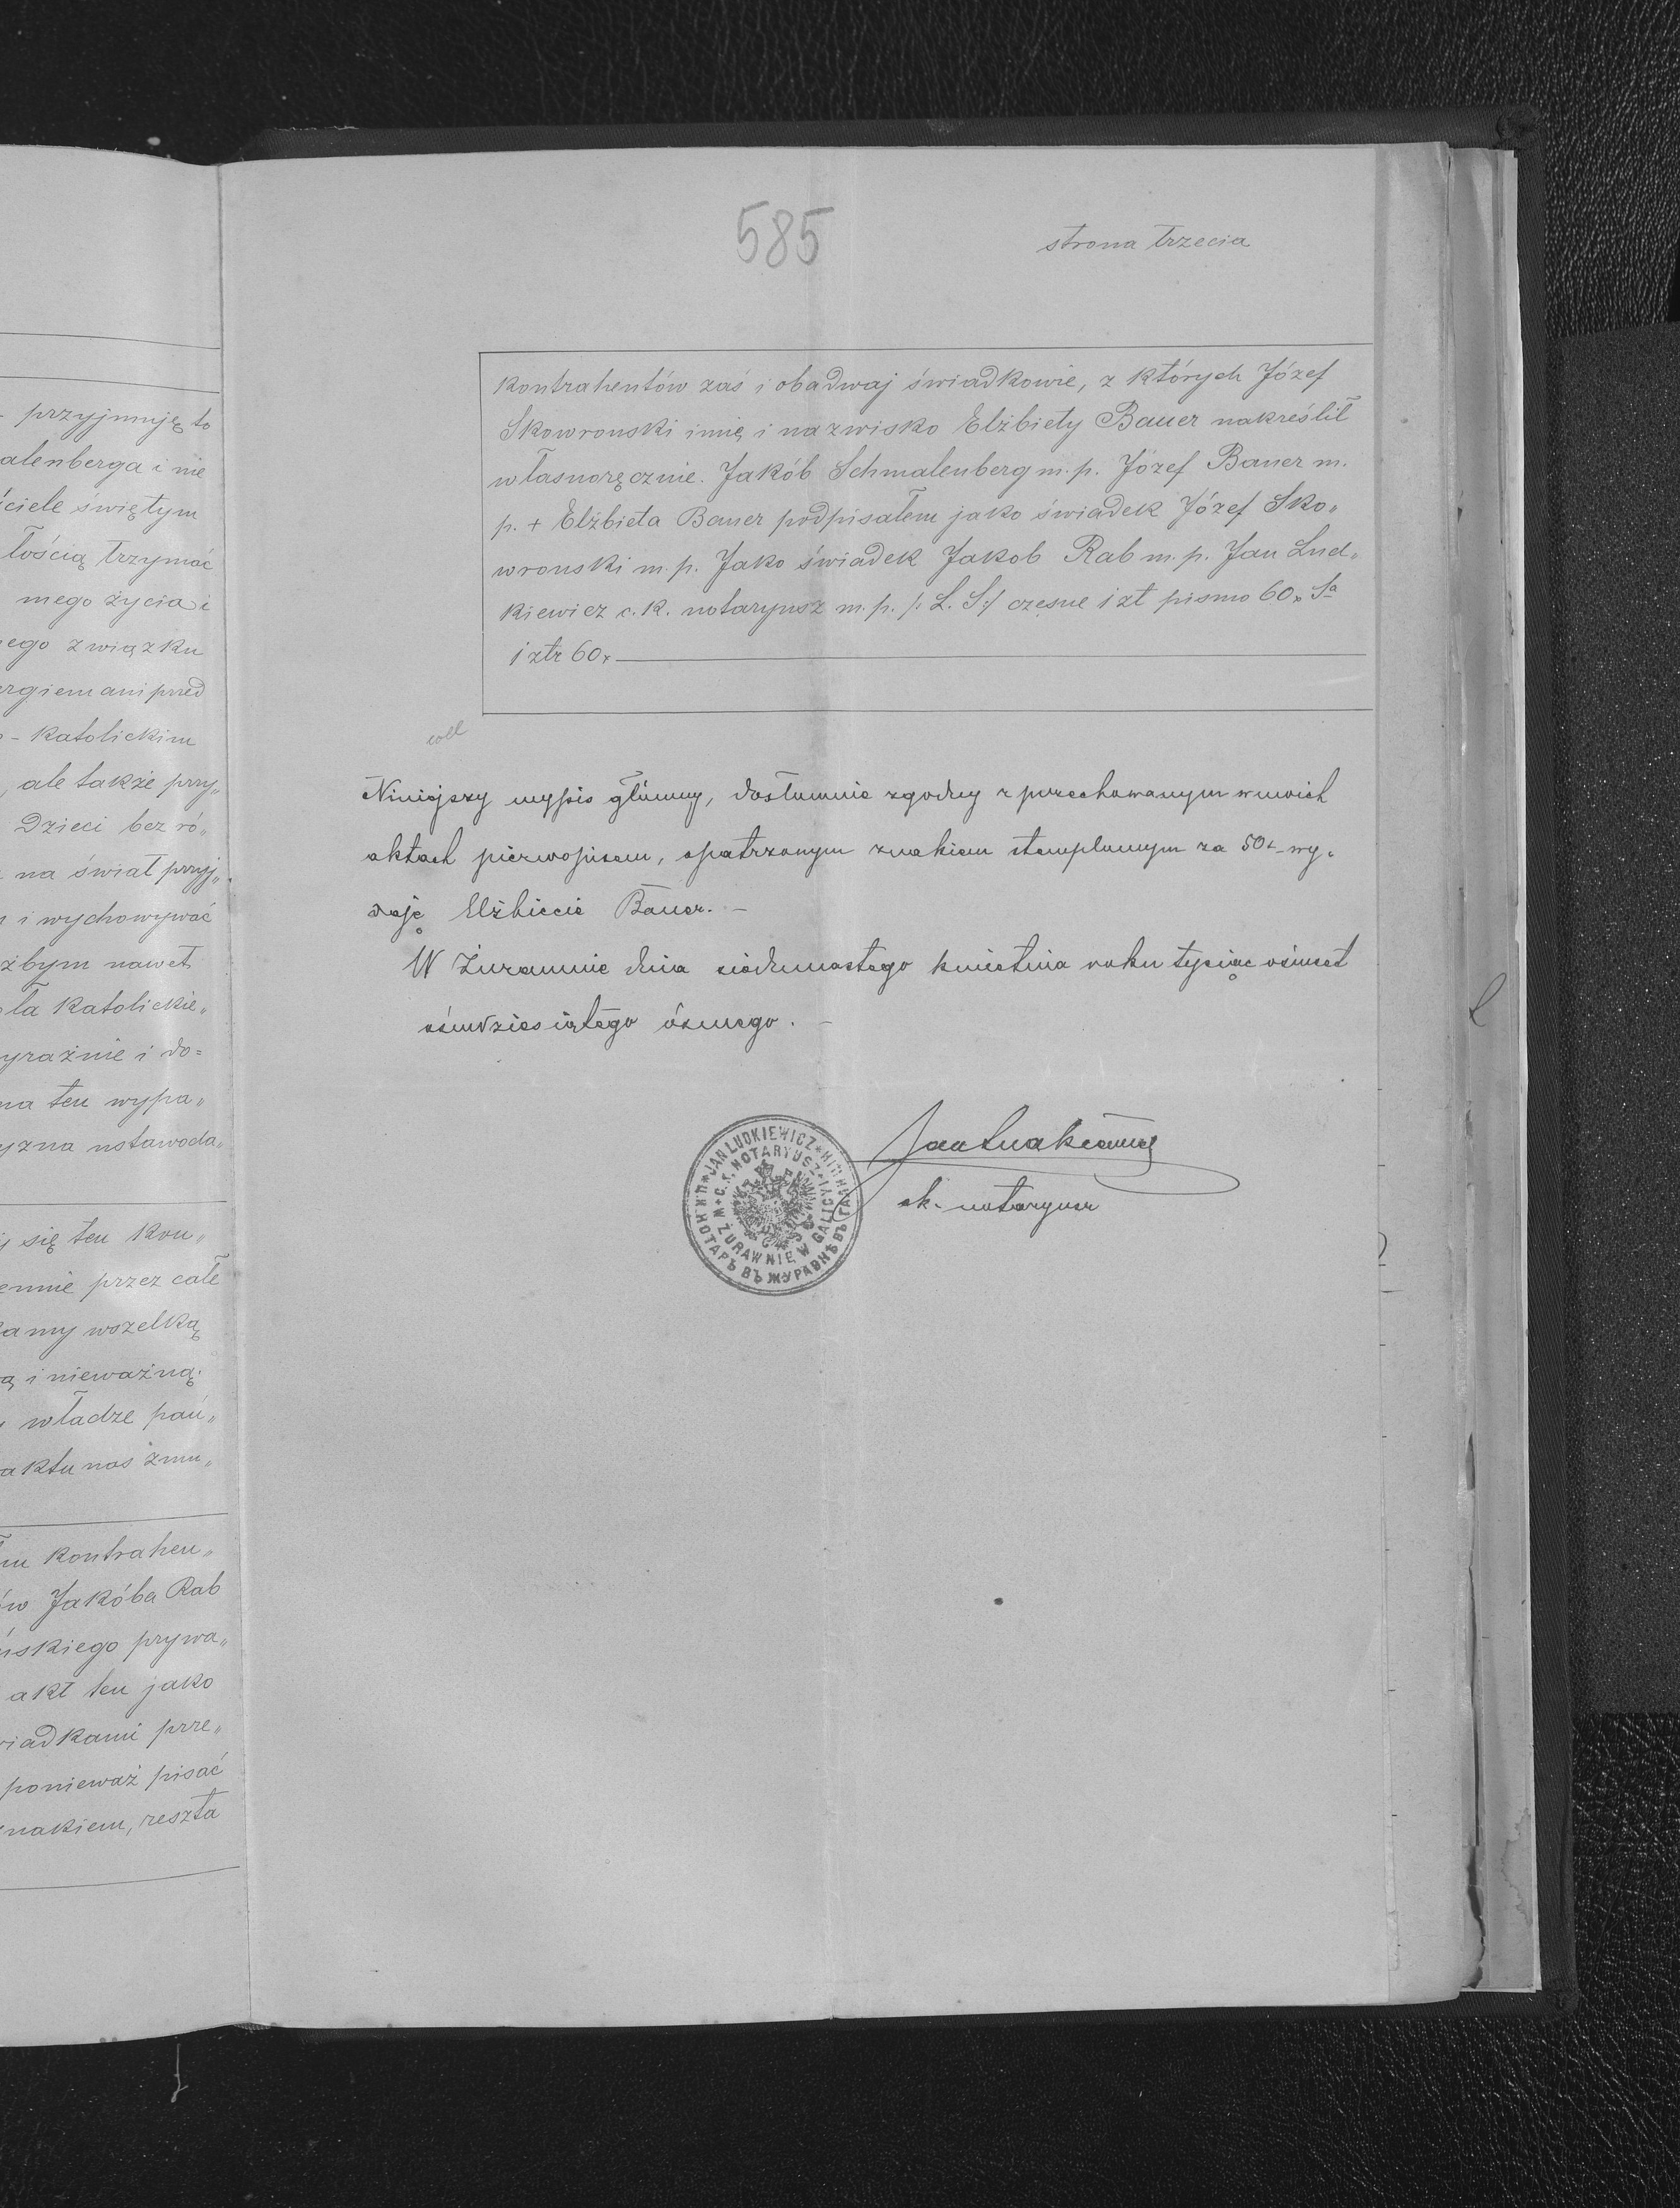 - przyjmuję to
alenberga i nie
ściele świętym
łością trzymać
mego życia i
ego związku
rgiem ani przed
- katolickim
, ale także przy„
Dzieci bez ró„
na świat przyj„
i wychowywać
żbym nawet
ła katolickie„
yraźnie i do=
na ten wypa„
yzna ustawoda„
się ten kon„
ennie przez całe
amy wszelką
ą i nieważną.
władze pań„
aktu nas zmu„
m kontrahen„
ów Jakóba Rab
ńskiego prywa„
akt ten jako
wiadkami prze„
ponieważ pisać
znakiem, reszta
585
strona trzecia
kontrahentów zaś i obadwaj świadkowie, z których Józef
Skowronski imię i nazwisko Elżbiety Bauer nakreślił
własnoręcznie. Jakób Schmalenberg m. p. Józef Bauer m.
p. + Elżbieta Bauer podpisałem jako świadek Józef Sko„
wronski m. p. Jako świadek Jakob Rab m. p. Jan Lud„
kiewicz c. k. notaryusz m. p. /: L. S:/ czesne 1 zł pismo 60x Sa
1 złr 60x
coll
Niniejszy wypis główny, dosłownie zgodny z przechowanym w moich
aktach pierwopisem, opatrzonym znakiem stemplowym za 50x wy„
daję Elżbiecie Bauer. –
W Żurawnie dnia siedmnastego kwietnia roku tysiąc ośmset
ośmdziesiątego ósmego. –
Jan Ludkiewicz
ck. notaryusz
JAN LUDKIEWICZ
C. K. NOTARYUSZ
W ŻURAWNIE W GALICYI
Ц. К. НОТАРЪ ВЪ ЖУРАВНѢ ВЪ ГА